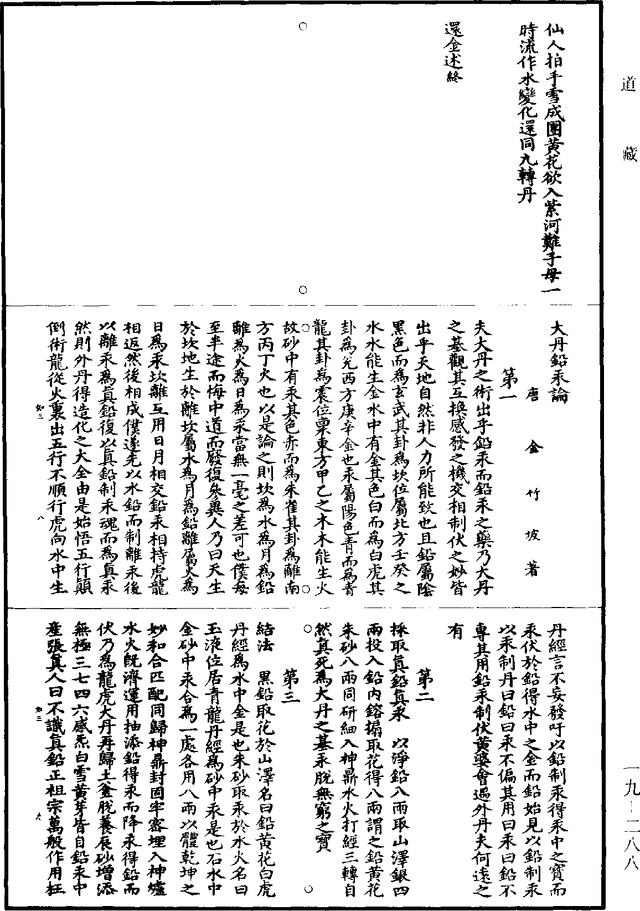 道藏
仙人拍手雪成團黃花欲入紫河難子母一
時流作水變化還同九轉丹
還金述終
大丹鉛汞論
唐金竹坡著
第一
夫大丹之術出乎鉛汞而鉛汞之藥乃大丹
之基觀其互換感發之機交相制伏之妙皆
出乎天地自然非人力所能致也且鉛屬陰
黑色而為玄武其卦為坎位屬北方壬癸之
水水能生金水中有金其色白而為白虎其
卦為兌西方庚辛金也汞屬陽色青而為青
龍其卦為震位稟東方甲乙之木木能生火
故砂中有汞其色赤而為朱雀其卦為離南
方丙丁火也以是論之則坎為水為月為鉛
離為火為日為汞當無一毫之差可也僕每
至半途而悔中道而廢復參異人乃曰天生
於坎地生於離坎屬水為月為鉛離屬火為
日為汞坎離互用日月相交鉛汞相持虎龍
相返然後相成僕遂先以水鉛而制離汞後
以離汞為真鉛復以真鉛制汞魂而為真汞
然則外丹得造化之大全由是始悟五行顛
倒術龍從火裏出五行不順行虎向水中生
丹經言不妄發吁以鉛制汞得汞中之寶而
汞伏於鉛得水中之金而鉛始見以鉛制汞
以汞制丹曰鉛曰汞不偏其用曰汞曰鉛不
專其用鉛汞制伏黃婆會遇外丹夫何遠之
有
第二
採取真鉛真汞　以淨鉛八兩取山澤銀四
兩投入鉛內鎔搦取花得八兩謂之鉛黃花
朱砂八兩同研細入神鼎水火打經三轉自
然真死為大丹之基汞脫無窮之寶
第三
結法　黑鉛取花於山澤名曰鉛黃花白虎
丹經為水中金是也朱砂取汞於水火名曰
玉液位居青龍丹經為砂中汞是也石水中
金砂中汞合為一處各用八兩以體乾坤之
妙和合匹配同歸神鼎封固牢密埋入神爐
水火既濟運用抽添鉛得汞而降汞得鉛而
伏乃為龍虎大丹再歸土釜脫養展砂增添
無極三七四六感炁白雪黃芽皆自鉛汞中
產張真人曰不識真鉛正祖宗萬般作用枉
一九-二八八